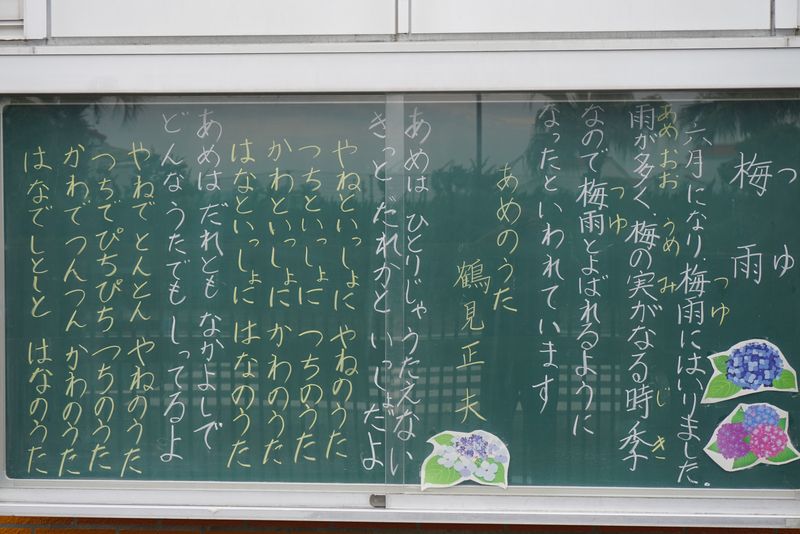 つゆ
梅雨
つゆ
六月になり、梅雨にはいりました。
あめおお うめ み じき
雨が多く梅の実がなる時季
つゆ
なので梅雨とよばれるように
なったといわれています
あめのうた
鶴見正夫
あめは ひとりじゃ うたえない
きっと だれかと いっしょだよ
やねといっしょに やねのうた
つちといっしょに つちのうた
かわといっしょに かわのうた
はなといっしょに はなのうた
あめは だれとも なかよしで
どんな うたでも しってるよ
やねで とんとん やねのうた
つちで ぴちぴち つちのうた
かわで つんつん かわのうた
はなで しとしと はなのうた